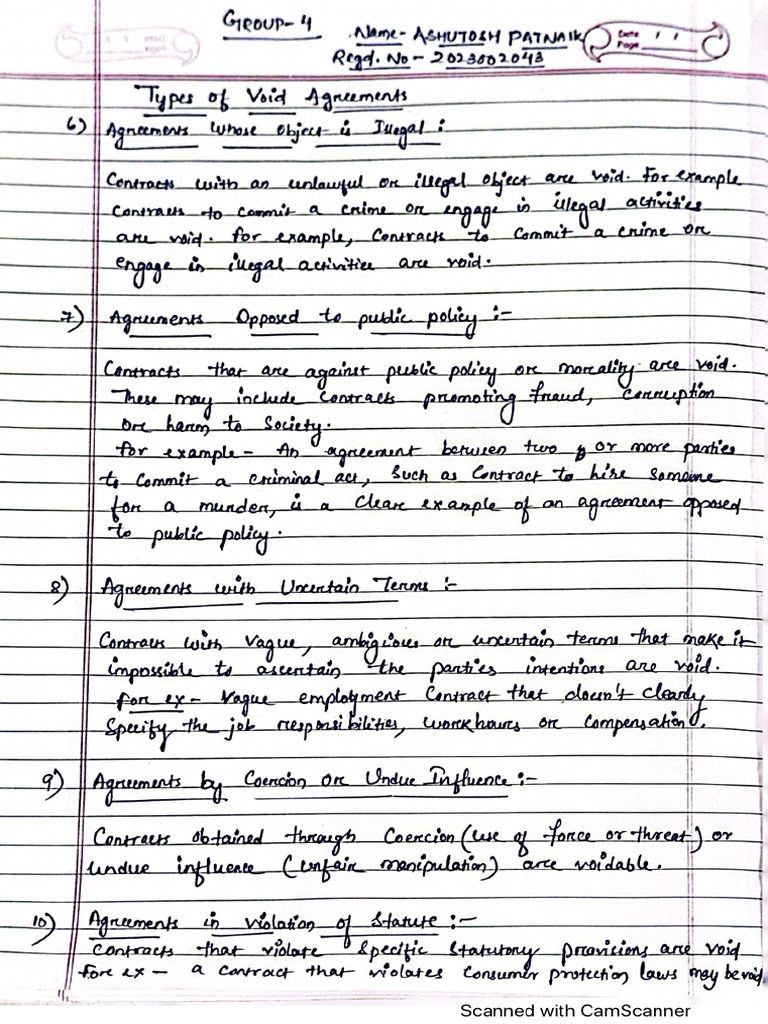 GROUP-4
Name- ASHUTOSH PATNAIK
Date
Page
Regd. No - 2023002043
Types of Void Agreements
6) Agreements whose Object is Illegal :
Contracts with an unlawful or illegal object are void. For example
contracts to commit a crime or engage in illegal activities
are void. for example, contracts to commit a crime or
engage in illegal activities are void.
7) Agreements Opposed to public policy :-
Contracts that are against public policy or morality are void.
These may include contracts promoting fraud, corruption
or harm to society.
for example - An agreement between two or more parties
to commit a criminal act, such as contract to hire someone
for a murder, is a clear example of an agreement opposed
to public policy.
8) Agreements with Uncertain Terms :-
Contracts with vague, ambigious or uncertain terms that make it
impossible to ascertain the parties intentions are void.
for ex - Vague employment contract that doesn't clearly
specify the job responsibilities, workhours or compensation.
9) Agreements by Coercion or Undue Influence :-
Contracts obtained through Coercion (use of force or threat) or
undue influence (unfair manipulation) are voidable.
10) Agreements in violation of Statute :-
Contracts that violate specific statutory provisions are void
for ex - a contract that violates consumer protection laws may be void
Scanned with CamScanner